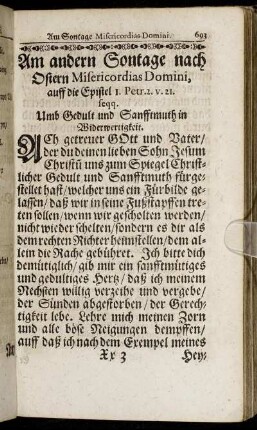 Am Sontage Misericordias Domini. 693
Am andern Sontage nach
Ostern Misericordias Domini,
auff die Epistel 1. Petr. 2. v. 21.
seqq.
Umb Gedult und Sanfftmuth in
Widerwertigkeit.
ACh getreuer GOtt und Vater/
der du deinen lieben Sohn Jesum
Christū uns zum Spiegel Christ-
licher Gedult und Sanfftmuth fürge-
stellet hast/ welcher uns ein Fürbilde ge-
lassen/ daß wir in seine Fußstapffen tre-
ten sollen/ wenn wir gescholten werden/
nicht wieder schelten/ sondern es dir als
dem rechten Richter heimstellen/ dem al-
lein die Rache gebühret. Jch bitte dich
demütiglich/ gib mir ein sanfftmütiges
und gedultiges Hertz/ daß ich meinem
Nechsten willig verzeihe und vergebe/
der Sünden abgestorben/ der Gerech-
tigkeit lebe. Lehre mich meinen Zorn
und alle böse Neigungen dempffen/
auff daß ich nach dem Exempel meines
Xx 3 Hey-